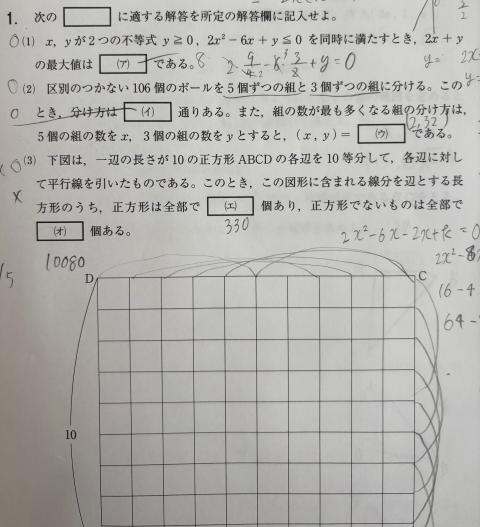 1. 次の □ に適する解答を所定の解答欄に記入せよ。
(1) x, y が2つの不等式 y≧0, 2x²−6x+y≦0 を同時に満たすとき, 2x+y
の最大値は (ア) である。8
(2) 区別のつかない106個のボールを5個ずつの組と3個ずつの組に分ける。この
とき, 分け方は (イ) 通りある。また, 組の数が最も多くなる組の分け方は,
5個の組の数を x, 3個の組の数を y とすると, (x, y)= (ウ) である。
(3) 下図は, 一辺の長さが10の正方形ABCDの各辺を10等分して, 各辺に対し
て平行線を引いたものである。このとき, この図形に含まれる線分を辺とする長
方形のうち, 正方形は全部で (エ) 個あり, 正方形でないものは全部で
(オ) 個ある。
330
2x²−6x−2x+k=0
10080
D
C
10